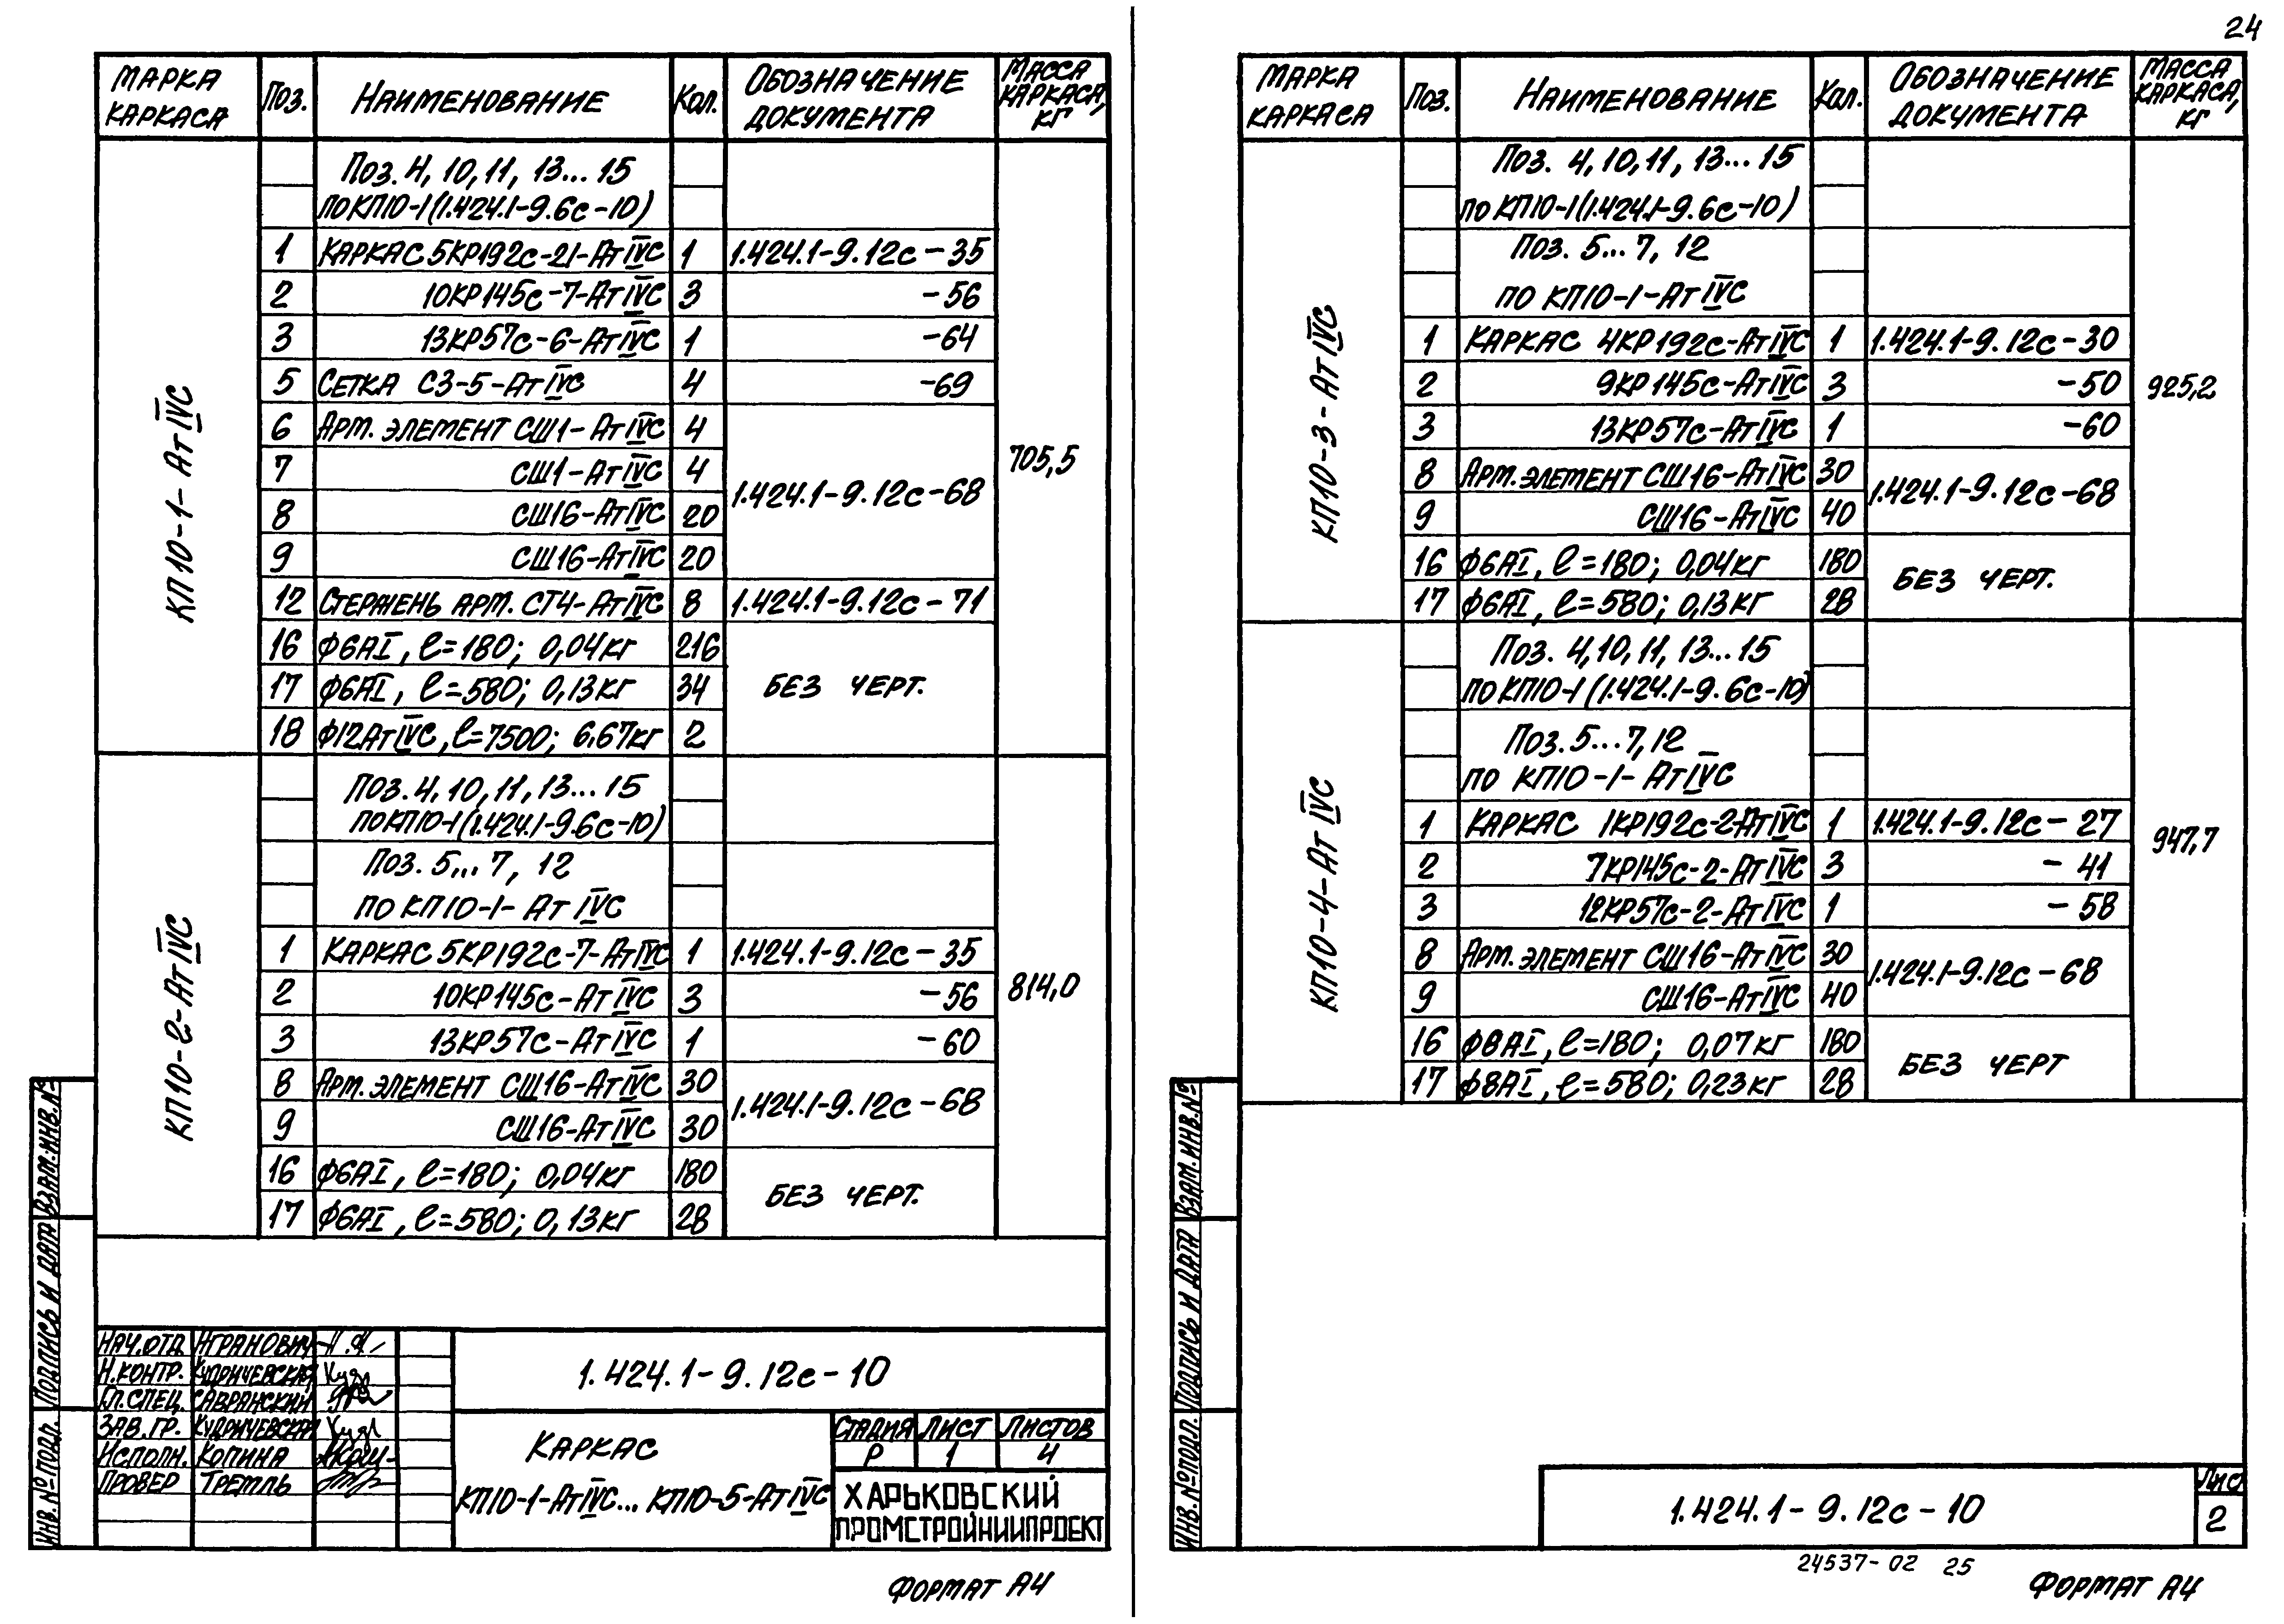 24
МАРКА КАРКАСА | Поз. | НАИМЕНОВАНИЕ | Кол. | ОБОЗНАЧЕНИЕ ДОКУМЕНТА | МАССА КАРКАСА, КГ
КП10-1-АтIVС
705,5
Поз. 4, 10, 11, 13... 15
ПО КП10-1 (1.424.1-9.6с-10)
1 КАРКАС 5КР192с-21-АтIVС 1 1.424.1-9.12с-35
2 10КР145с-7-АтIVС 3 -56
3 13КР57с-6-АтIVС 1 -64
5 СЕТКА С3-5-АтIVС 4 -69
6 АРМ. ЭЛЕМЕНТ СШ1-АтIVС 4
7 СШ1-АтIVС 4
1.424.1-9.12с-68
8 СШ16-АтIVС 20
9 СШ16-АтIVС 20
12 СТЕРЖЕНЬ АРМ. СТ4-АтIVС 8 1.424.1-9.12с-71
16 Ф6АI, ℓ=180; 0,04кг 216
17 Ф6АI, ℓ=580; 0,13кг 34 БЕЗ ЧЕРТ.
18 Ф12АтIVС, ℓ=7500; 6,67кг 2
КП10-2-АтIVС
814,0
Поз. 4, 10, 11, 13... 15
ПО КП10-1 (1.424.1-9.6с-10)
Поз. 5... 7, 12
ПО КП10-1-АтIVС
1 КАРКАС 5КР192с-7-АтIVС 1 1.424.1-9.12с-35
2 10КР145с-АтIVС 3 -56
3 13КР57с-АтIVС 1 -60
8 АРМ. ЭЛЕМЕНТ СШ16-АтIVС 30
1.424.1-9.12с-68
9 СШ16-АтIVС 30
16 Ф6АI, ℓ=180; 0,04кг 180
БЕЗ ЧЕРТ.
17 Ф6АI, ℓ=580; 0,13кг 28
ВЗАМ. ИНВ. №
ПОДПИСЬ И ДАТА
ИНВ. № ПОДЛ.
НАЧ. ОТД.
Н. КОНТР. КУДРИЧЕВСКАЯ
ГЛ. СПЕЦ. САВРАНСКИЙ
ЗАВ. ГР. КУДРИЧЕВСКАЯ
ИСПОЛН. КОПИНА
ПРОВЕР ТРЕТЛЬ
1.424.1-9.12с-10
КАРКАС
КП10-1-АтIVС... КП10-5-АтIVС
СТАДИЯ ЛИСТ ЛИСТОВ
Р 1 4
ХАРЬКОВСКИЙ
ПРОМСТРОЙНИИПРОЕКТ
ФОРМАТ А4
МАРКА КАРКАСА | Поз. | НАИМЕНОВАНИЕ | Кол. | ОБОЗНАЧЕНИЕ ДОКУМЕНТА | МАССА КАРКАСА, КГ
КП10-3-АтIVС
925,2
Поз. 4, 10, 11, 13... 15
ПО КП10-1 (1.424.1-9.6с-10)
Поз. 5... 7, 12
ПО КП10-1-АтIVС
1 КАРКАС 4КР192с-АтIVС 1 1.424.1-9.12с-30
2 9КР145с-АтIVС 3 -50
3 13КР57с-АтIVС 1 -60
8 АРМ. ЭЛЕМЕНТ СШ16-АтIVС 30
1.424.1-9.12с-68
9 СШ16-АтIVС 40
16 Ф6АI, ℓ=180; 0,04кг 180
БЕЗ ЧЕРТ.
17 Ф6АI, ℓ=580; 0,13кг 28
КП10-4-АтIVС
947,7
Поз. 4, 10, 11, 13... 15
ПО КП10-1 (1.424.1-9.6с-10)
Поз. 5... 7, 12
ПО КП10-1-АтIVС
1 КАРКАС 1КР192с-2-АтIVС 1 1.424.1-9.12с-27
2 7КР145с-2-АтIVС 3 -41
3 12КР57с-2-АтIVС 1 -58
8 АРМ. ЭЛЕМЕНТ СШ16-АтIVС 30
1.424.1-9.12с-68
9 СШ16-АтIVС 40
16 Ф8АI, ℓ=180; 0,07кг 180
БЕЗ ЧЕРТ
17 Ф8АI, ℓ=580; 0,23кг 28
ВЗАМ. ИНВ. №
ПОДПИСЬ И ДАТА
ИНВ. № ПОДЛ.
1.424.1-9.12с-10
Лис
2
24537-02 25
ФОРМАТ А4